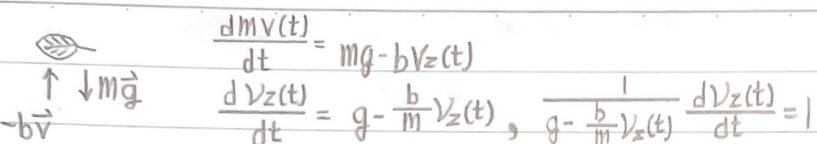 dmv(t)/dt = mg - bVz(t)
↑ ↓mg⃗ dVz(t)/dt = g - b/m Vz(t) , 1/(g - b/m Vz(t)) dVz(t)/dt = 1
-bv⃗